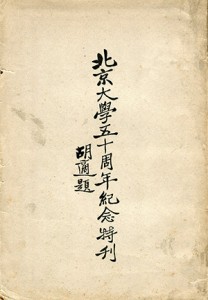 北京大學五十周年紀念特刊
胡適題